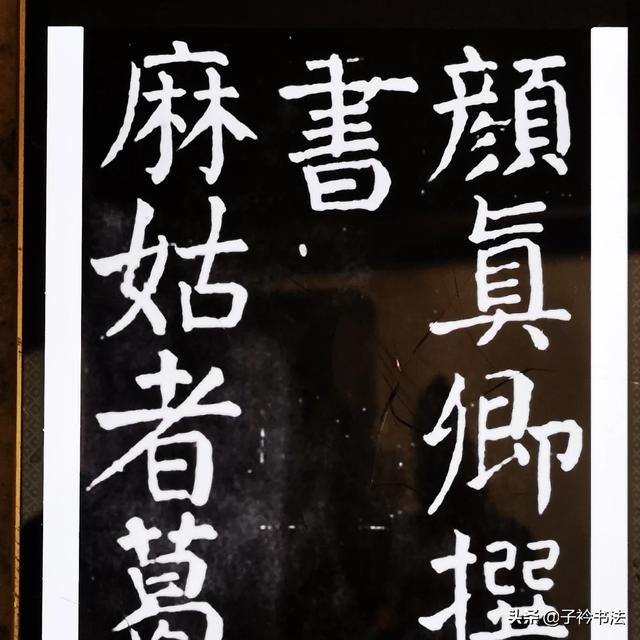 顔真卿撰
書
麻姑者葛
头条 @子衿书法